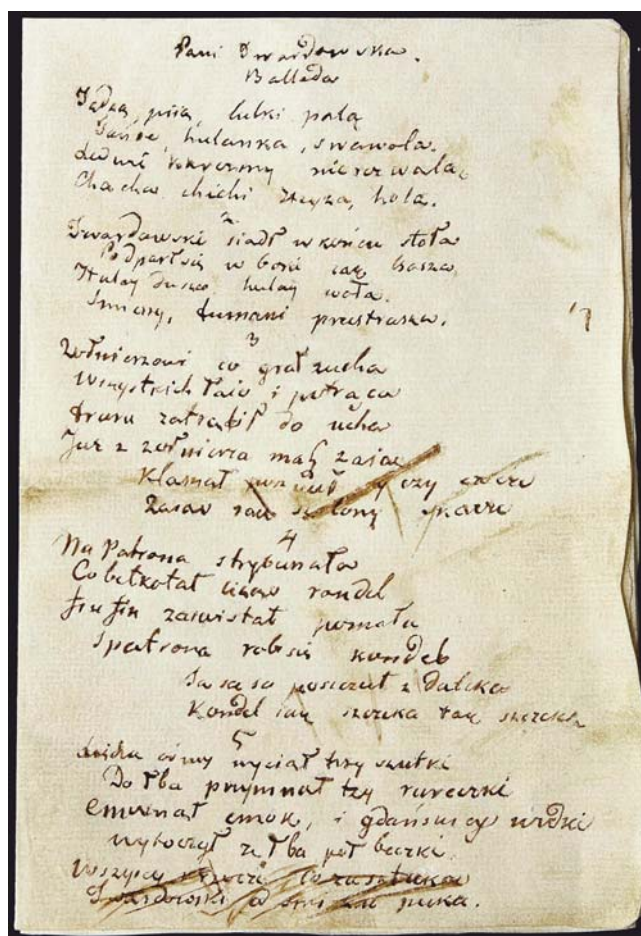 Pani Twardowska.
Ballada
Jedzą, piią, lulki palą
Tańce, hulanka, swawola.
Ledwie karczmy nierozwalą,
Cha cha chichi heyza, hola.
2
Twardowski siadł w końcu stoła
Podparł się w boki iak basza,
Hulay duszo hulay woła.
Smieszy, tumani przestrasza.
3
Zołnierzowi co grał zucha
Wszystkich łaie i potrąca
świsnął do ucha
Już z żołnierza masz zaiąc
Klasnął
Zaiąc iak szalony
4
Na Patrona z trybunału
Co bełkotał rondel
Fiu fiu zaswistał pomału
Z patrona robi się kondel
z daleka
Kondel iak szczeka tak szczeka
5
wyciął trzy szutki
Do łba przymnął trzy rureczki
Cmoknął cmok, i gdańskiey wódki
wytoczył ze łba pół beczki.
Wszyscy co za sztuka
Twardowski